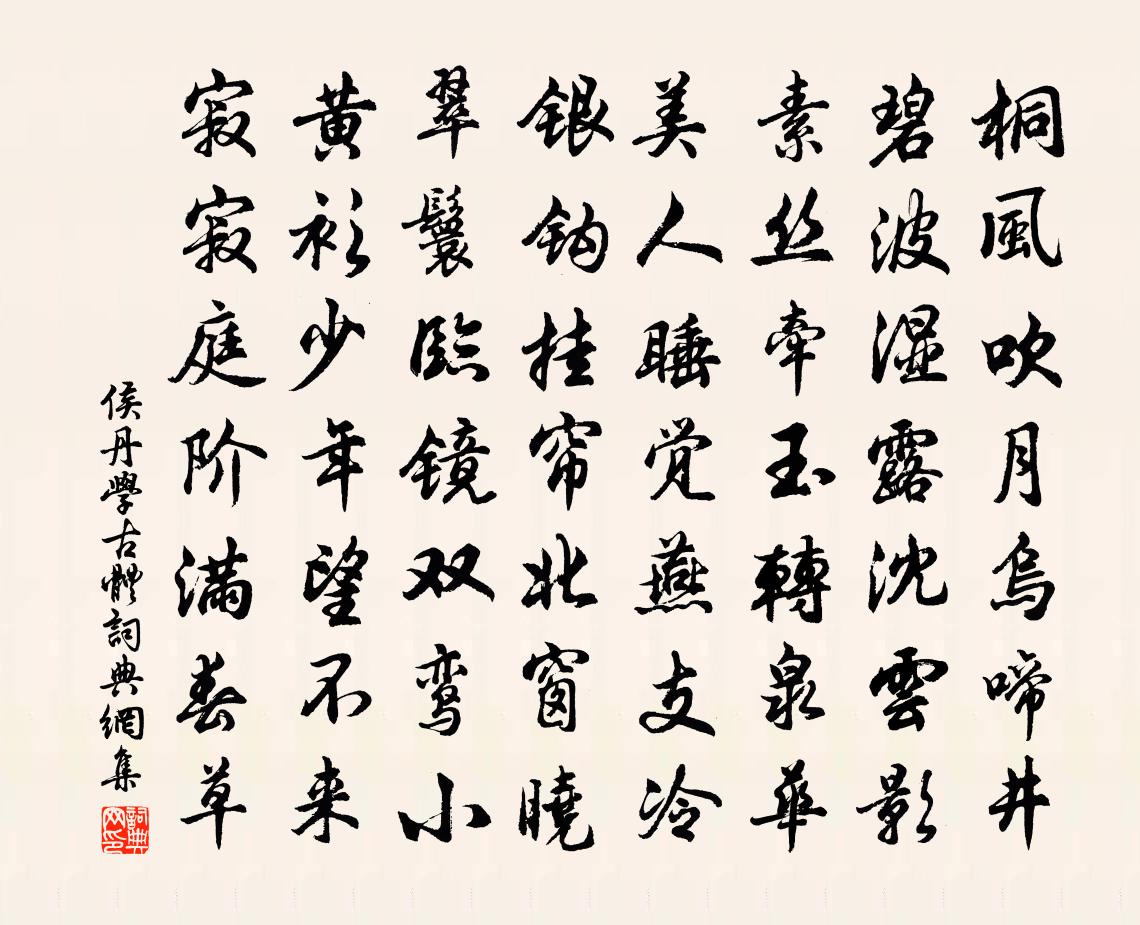 桐風吹月烏啼井
碧波湿露沈雲影
素丝牵玉轉泉華
美人睡觉燕支冷
银钩挂帘北窗曉
翠鬟臨镜双鸾小
黄衫少年望不来
寂寂庭阶满春草
侯丹學古體詞典網集
詞典网印